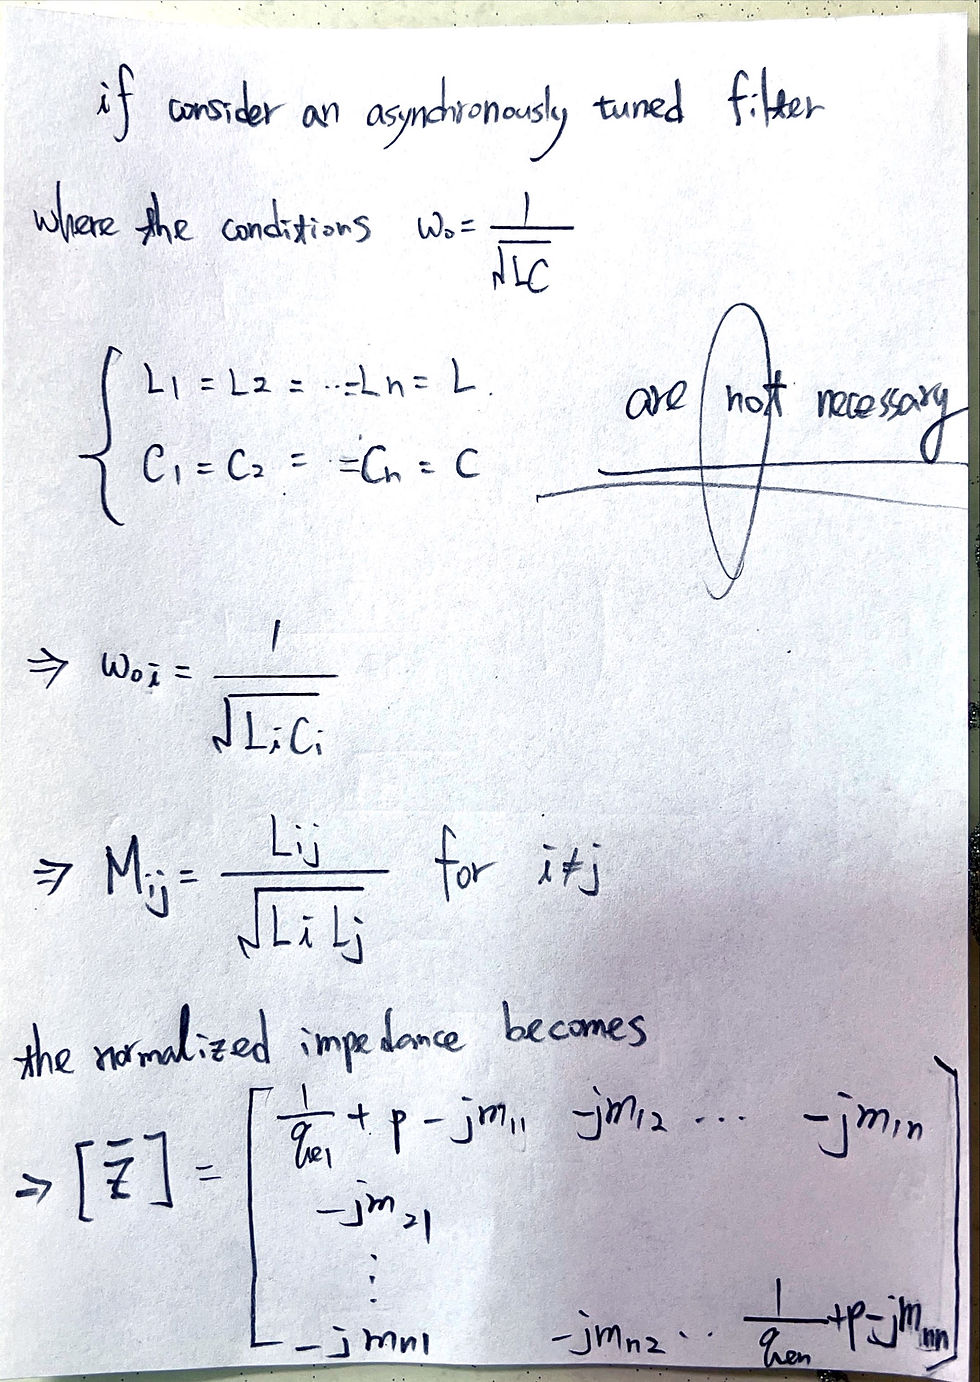 if consider an asynchronously tuned filter
where the conditions ω₀ = 1/√LC
{ L1 = L2 = ... = Ln = L.
C1 = C2 = ... = Cn = C
are not necessary
⇒ ω₀i = 1/√LiCi
⇒ Mij = Lij/√LiLj for i≠j
the normalized impedance becomes
⇒ [Z̄] = [ 1/qe1 + p - jm11 -jm12 ... -jm1n
-jm21
⋮
-jmn1 -jmn2 ... 1/qen + p - jmnn ]